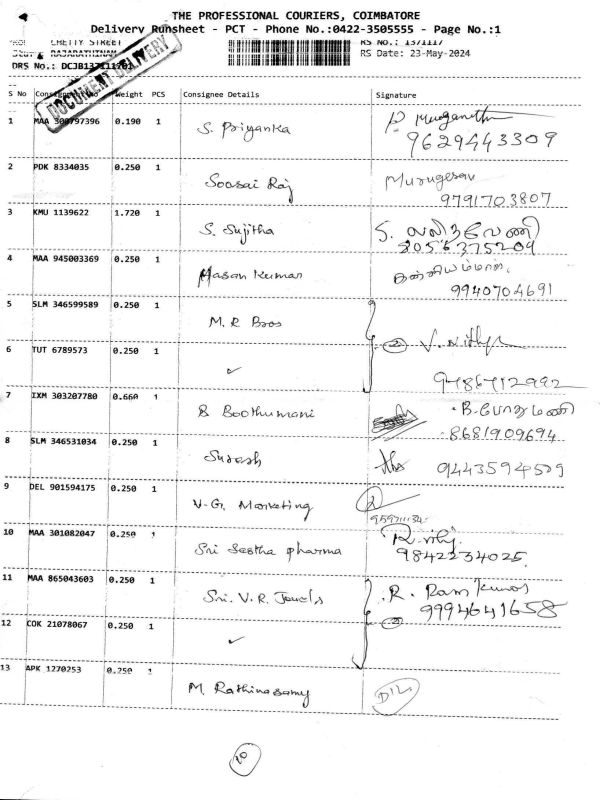 THE PROFESSIONAL COURIERS, COIMBATORE
Delivery Runsheet - PCT - Phone No.:0422-3505555 - Page No.:1
CHETTY STREET
RS No.: 1371117
RAJARATHINAM
RS Date: 23-May-2024
DRS No.: DCJB137111701
DOCUMENT DELIVERY
S No Consignment No Weight PCS Consignee Details Signature
1 MAA 300797396 0.190 1 S. Priyanka
9629443309
2 PDK 8334035 0.250 1 Soosai Raj Murugesan
9791703807
3 KMU 1139622 1.720 1 S. Sujitha
4 MAA 945003369 0.250 1 Hasan Kumar
9940704691
5 SLM 346599589 0.250 1 M.R Bros
② V. Nithya
6 TUT 6789573 0.250 1 ✓
7 IXM 303207780 0.660 1 B Boothumani B.போதுமணி
8681909694
8 SLM 346531034 0.250 1 Suresh
9 DEL 901594175 0.250 1 V.G. Marketing
10 MAA 301082047 0.250 1 Sri Sastha pharma
9842234025
11 MAA 865043603 0.250 1 Sri. V.R. Jewels R. Ram Kumar
9994641658
②
12 COK 21078067 0.250 1 ✓
13 APK 1270253 0.250 1 M. Rathinasamy D12
20